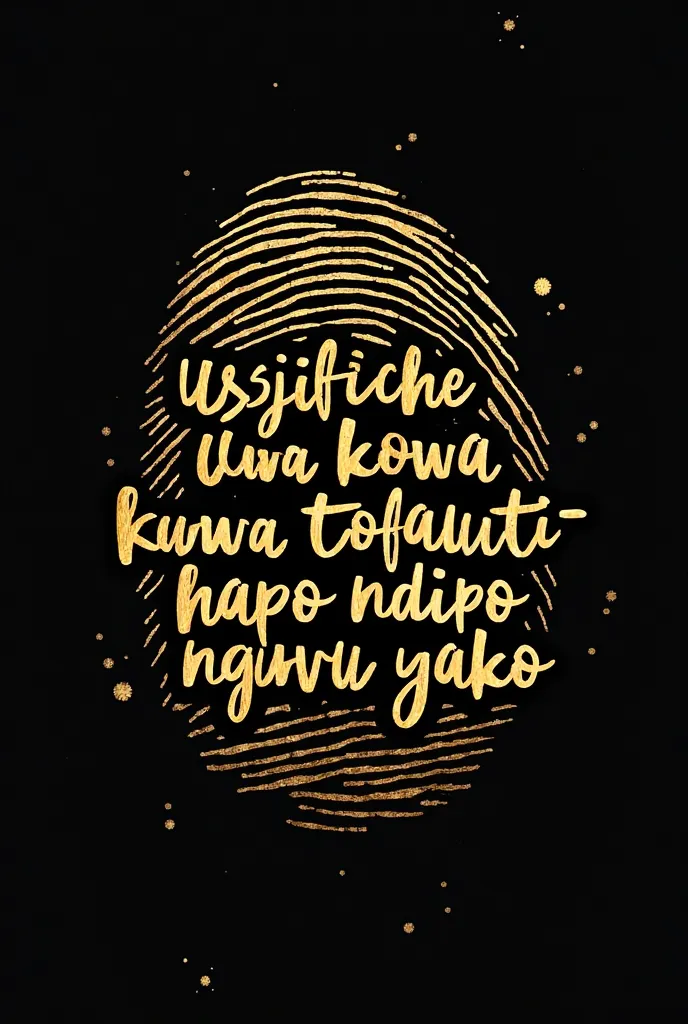 Ussjifiche
Uwa kowa
kuwa tofauuti-
hapo ndipo
nguvu yako